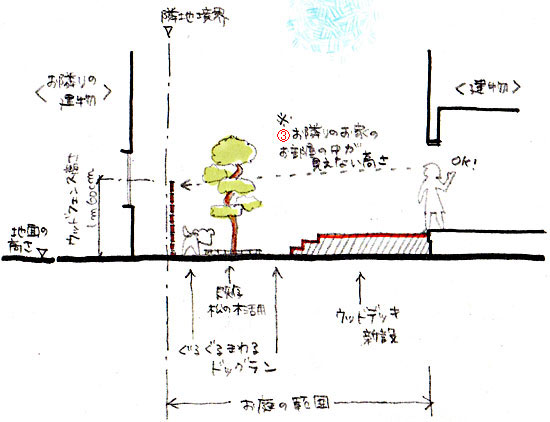 隣地境界
<お隣りの
建物>
<建物>
※
③お隣りのお家の
お部屋の中が
見えない高さ
OK!
ウッドフェンス高さ
1m60cm
地面の
高さ
既存
松の木活用
ウッドデッキ
新設
ぐるぐるまわる
ドッグラン
お庭の範囲